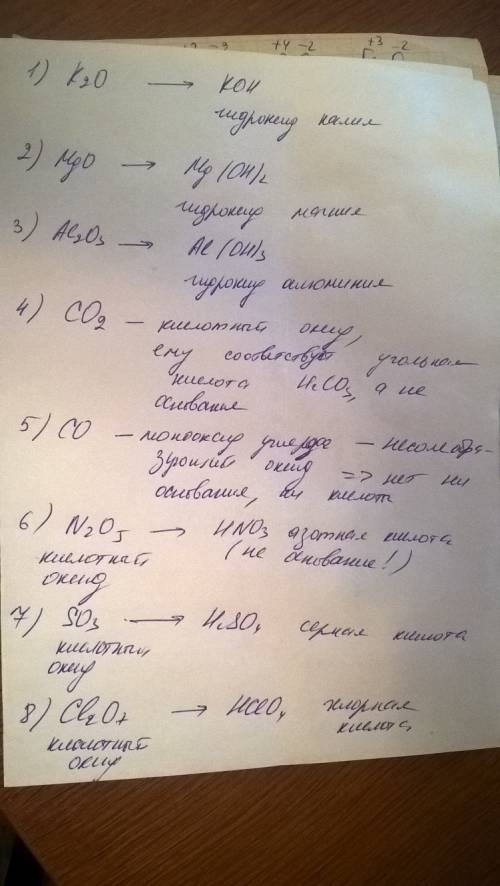 +3 -2
+4 -2
+3 -2
1) K2O → KOH
гидроксид калия
2) MgO → Mg(OH)2
гидроксид магния
3) Al2O3 → Al(OH)3
гидроксид алюминия
4) CO2 – кислотный оксид,
ему соответствует угольная
кислота H2CO3, а не
основание
5) CO – монооксид углерода – несолеобра-
зующий оксид => нет ни
основания, ни кислоты
6) N2O5 → HNO3 азотная кислота
кислотный (не основание!)
оксид
7) SO3 → H2SO4 серная кислота
кислотный
оксид
8) Cl2O7 → HClO4 хлорная
кислотный кислота
оксид